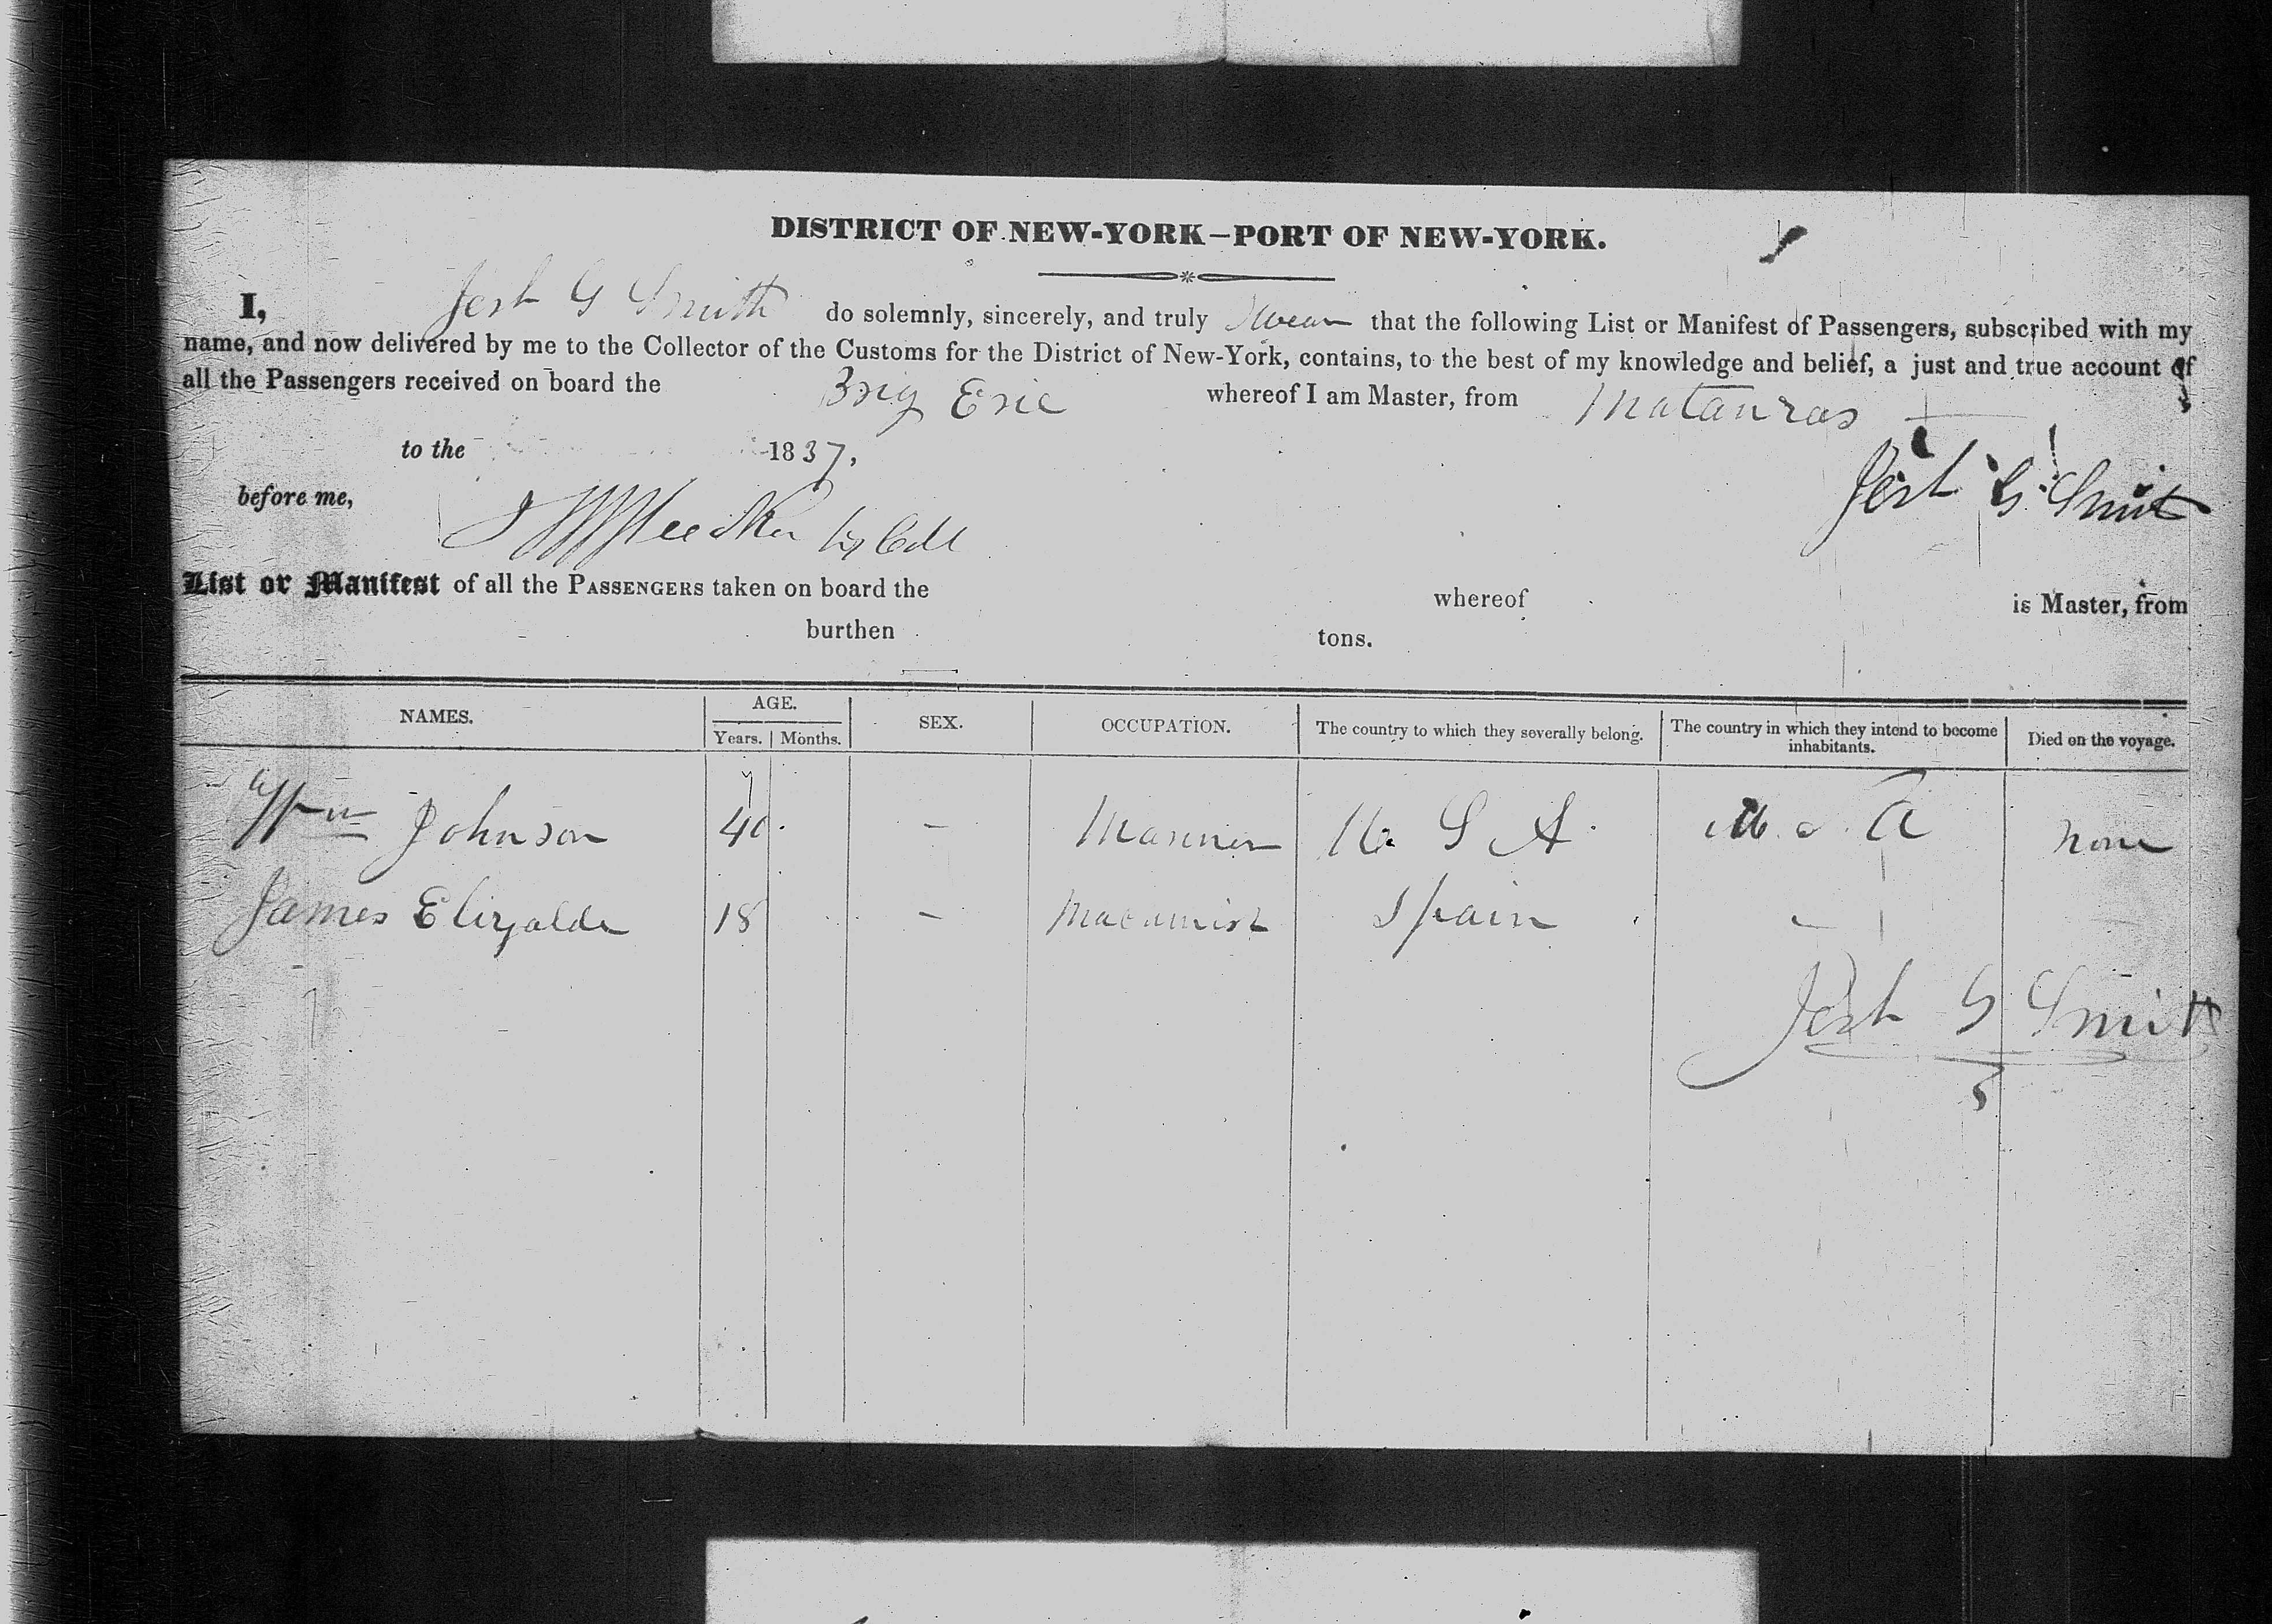 DISTRICT OF NEW-YORK—PORT OF NEW-YORK.
I, G Smith do solemnly, sincerely, and truly swear that the following List or Manifest of Passengers, subscribed with my
name, and now delivered by me to the Collector of the Customs for the District of New-York, contains, to the best of my knowledge and belief, a just and true account of
all the Passengers received on board the Brig Erie whereof I am Master, from Matanzas
to the 1837,
before me,
G Smith
List or Manifest of all the PASSENGERS taken on board the whereof is Master, from
burthen tons.
NAMES. AGE. SEX. OCCUPATION. The country to which they severally belong. The country in which they intend to become inhabitants. Died on the voyage.
Years. Months.
Wm Johnson 40 - Mariner U S A U S A None
James Elizalde 18 - Spain
G Smith